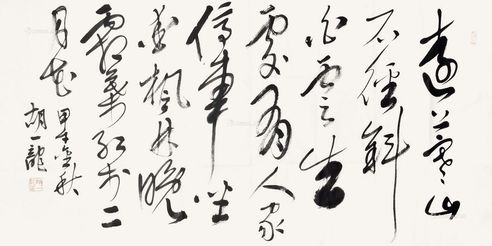 遠上寒山
石徑斜
白雲生
處有人家
停車坐
愛楓林晚
霜葉紅於二
月花
甲午金秋
胡一龍